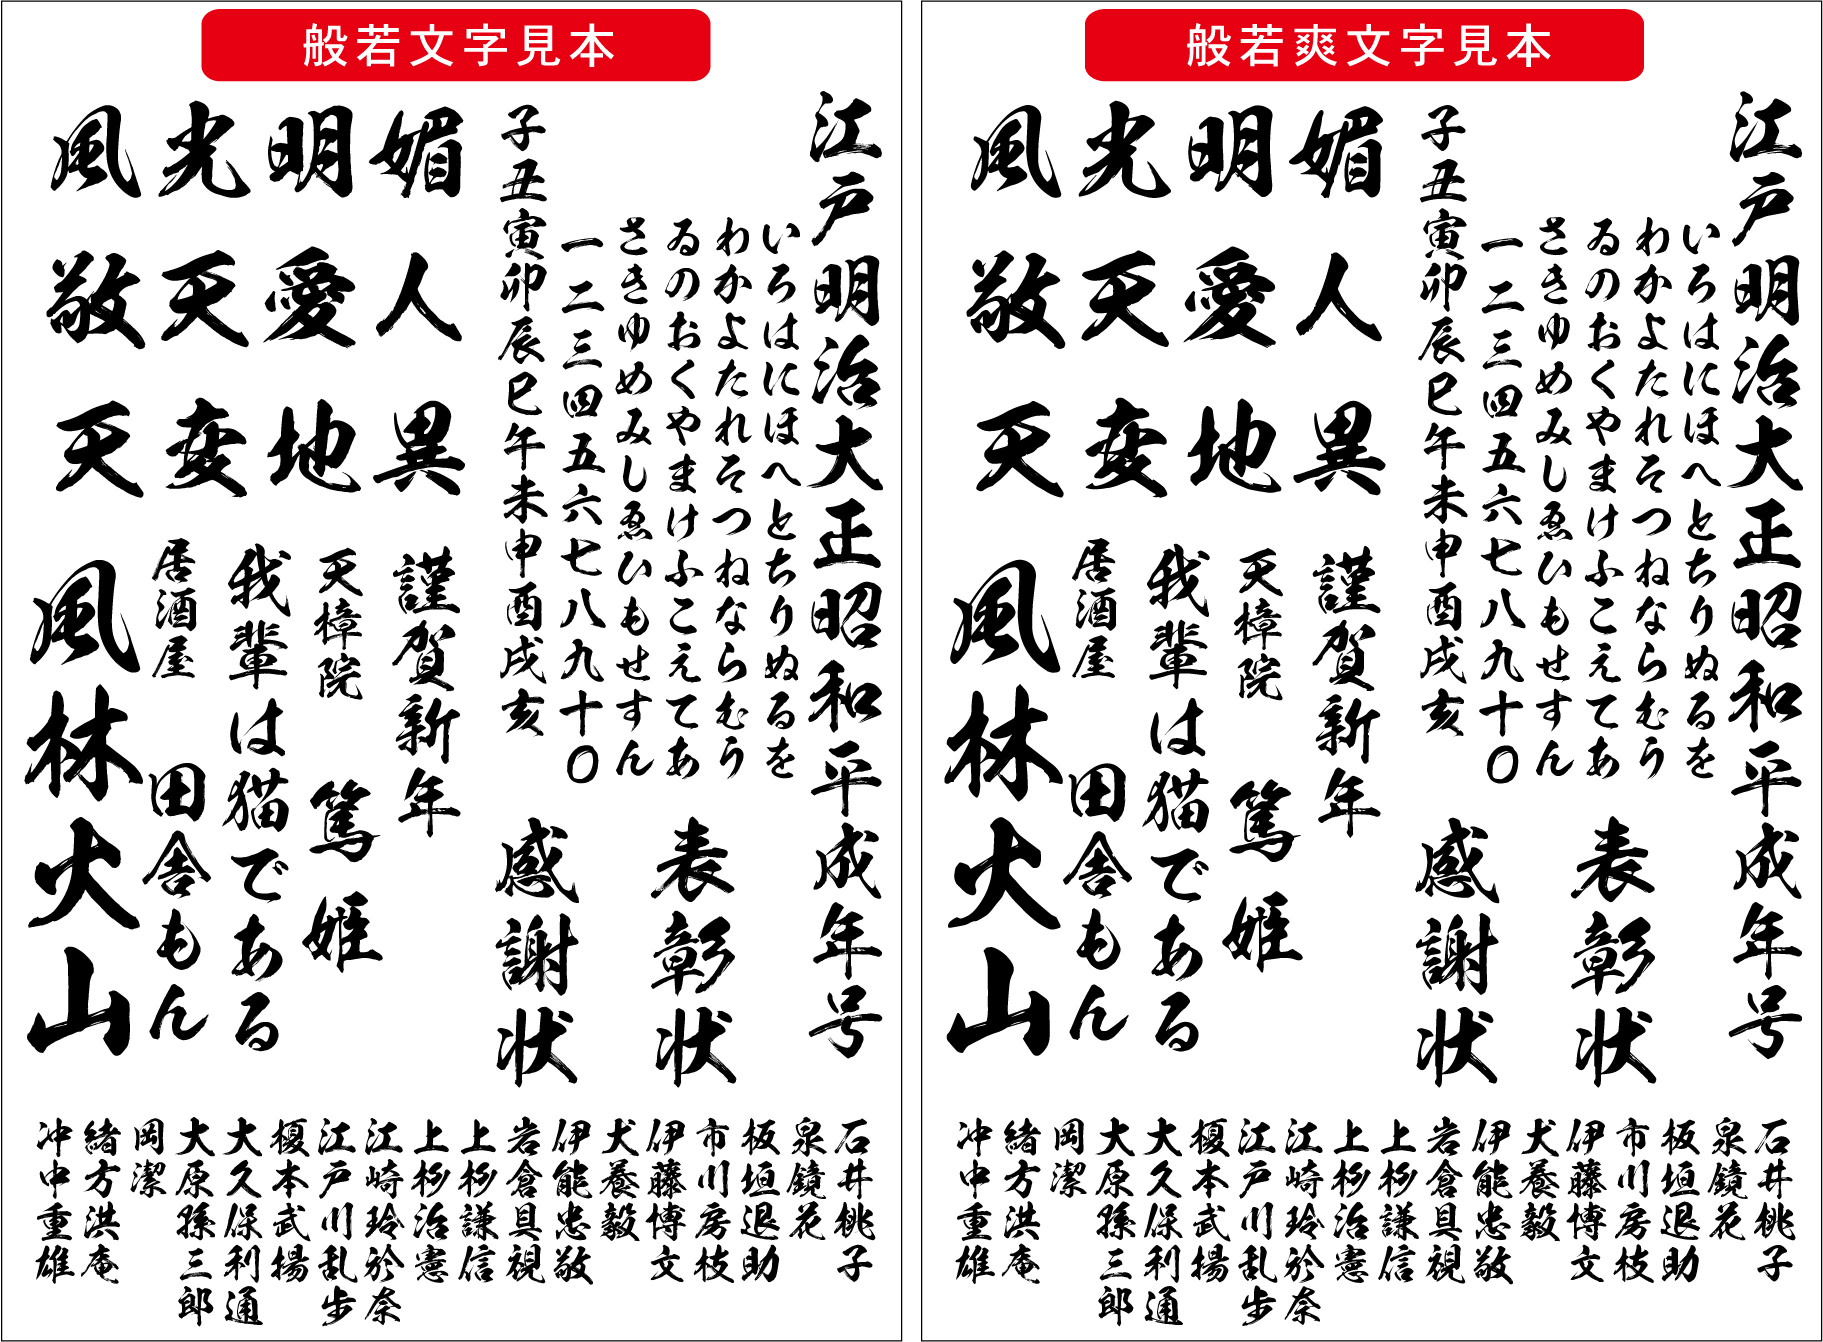 般若文字見本
江戸明治大正昭和平成年号
いろはにほへとちりぬるを
わかよたれそつねならむう
ゐのおくやまけふこえてあ
さきゆめみしゑひもせすん
一二三四五六七八九十〇
子丑寅卯辰巳午未申酉戌亥
表彰状
感謝状
風光明媚
敬天愛人
天変地異
謹賀新年
天樟院 篤姫
我輩は猫である
居酒屋 田舎もん
風林火山
石井桃子
泉鏡花
板垣退助
市川房枝
伊藤博文
犬養毅
伊能忠敬
岩倉具視
上杉謙信
上杉治憲
江崎玲於奈
江戸川乱歩
榎本武揚
大久保利通
大原孫三郎
岡潔
緒方洪庵
冲中重雄
般若爽文字見本
江戸明治大正昭和平成年号
いろはにほへとちりぬるを
わかよたれそつねならむう
ゐのおくやまけふこえてあ
さきゆめみしゑひもせすん
一二三四五六七八九十〇
子丑寅卯辰巳午未申酉戌亥
表彰状
感謝状
風光明媚
敬天愛人
天変地異
謹賀新年
天樟院 篤姫
我輩は猫である
居酒屋 田舎もん
風林火山
石井桃子
泉鏡花
板垣退助
市川房枝
伊藤博文
犬養毅
伊能忠敬
岩倉具視
上杉謙信
上杉治憲
江崎玲於奈
江戸川乱歩
榎本武揚
大久保利通
大原孫三郎
岡潔
緒方洪庵
冲中重雄